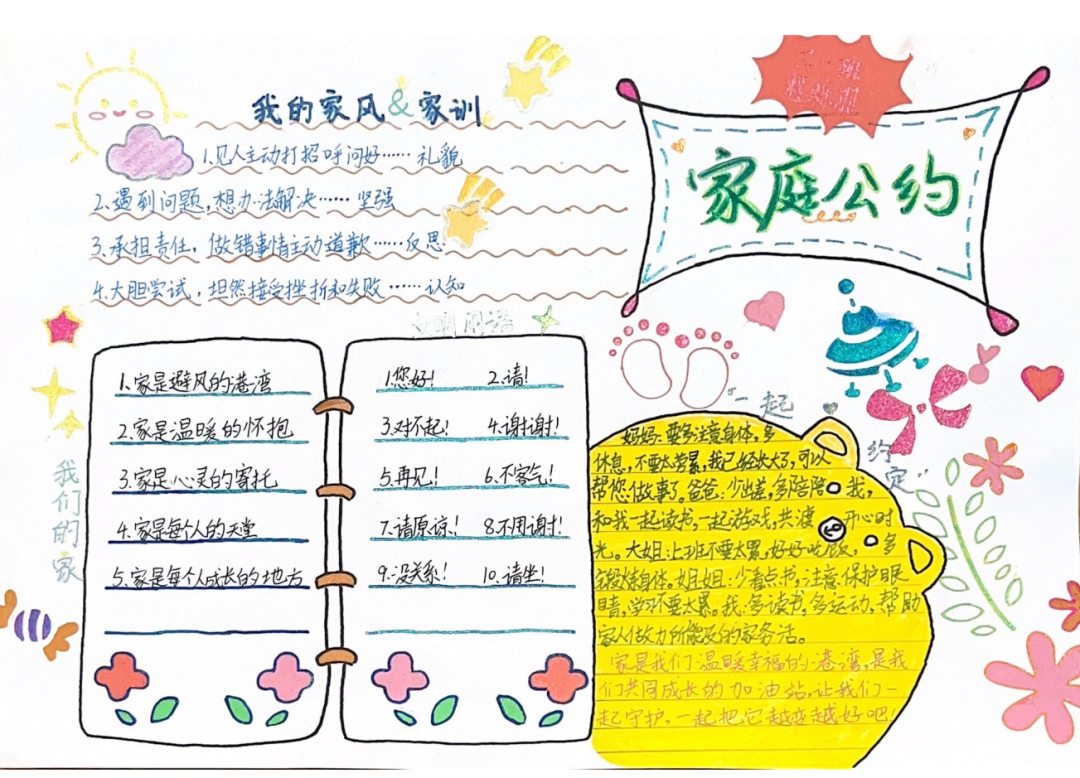 我的家风&家训
1.见人主动打招呼问好……礼貌
2.遇到问题,想办法解决……坚强
3.承担责任,做错事情主动道歉……反思
4.大胆尝试,坦然接受挫折和失败……认知
家庭公约
文明用语
我们的家
1.家是避风的港湾
2.家是温暖的怀抱
3.家是心灵的寄托
4.家是每个人的天堂
5.家是每个人成长的地方
1.您好! 2.请!
3.对不起! 4.谢谢!
5.再见! 6.不客气!
7.请原谅! 8.不用谢!
9.没关系! 10.请坐!
"一起约定"
妈妈:要多注意身体,多
休息,不要太劳累,我已经长大了,可以
帮您做事了。爸爸:少出差,多陪陪我,
和我一起读书,一起游戏,共渡开心时
光。大姐:上班不要太累,好好吃饭,多
锻炼身体。姐姐:少看点书,注意保护眼
睛,学习不要太累。我:多读书,多运动,帮助
家人做力所能及的家务活。
家是我们温暖幸福的港湾,是我
们共同成长的加油站,让我们一
起守护,一起把它越变越好吧!